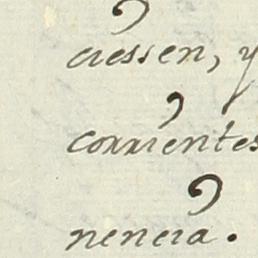 ciessen, y
corrientes
nencia.